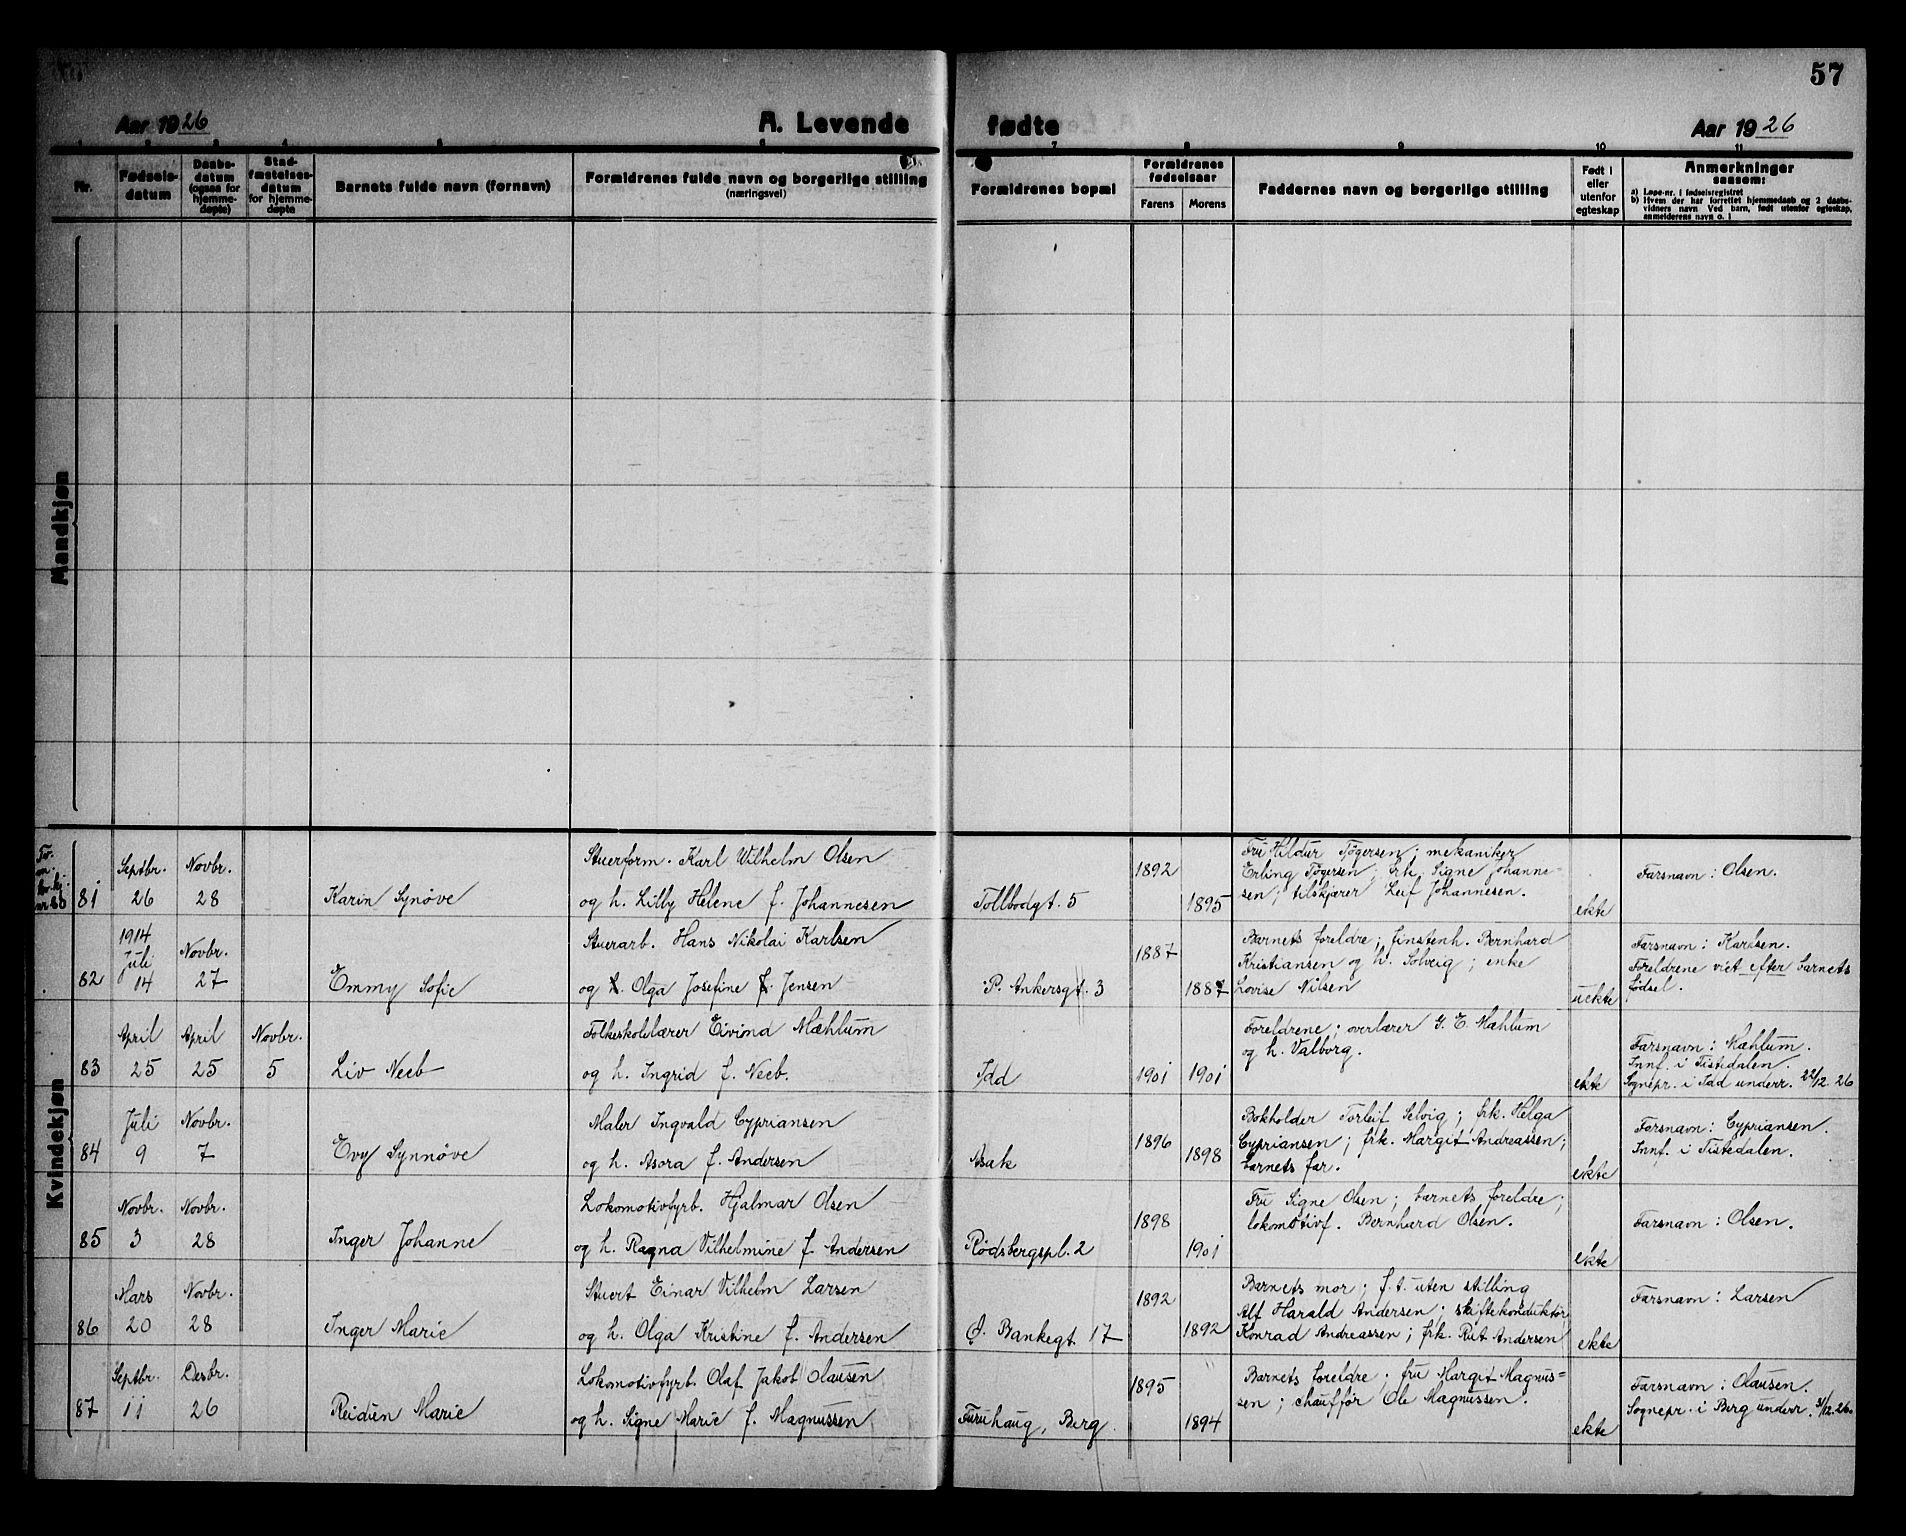 57
Aar 1926
A. Levende
fødte
Aar 1926
7 8 9 10 11
Nr.
Fødsels-
datum
Daabs-
datum
(ogsaa for
hjemme-
døpte)
Stad-
fæstelses-
datum
for hjemme-
døpte
Barnets fulde navn (fornavn)
Forældrenes fulde navn og borgerlige stilling
(næringsvei)
Forældrenes bopæl
Forældrenes
fødselsaar
Farens Morens
Faddernes navn og borgerlige stilling
Født i
eller
utenfor
egteskap
Anmerkninger
saasom:
a) Løpe-nr. i fødselsregistret
b) Hvem der har forrettet hjemmedaab og 2 daabs-
vidners navn Ved barn, født utenfor egteskap,
anmelderens navn o. l
Mandkjøn
Kvindekjøn
81
Septbr.
26
Novbr.
28
Karin Synøve
Stuerform. Karl Wilhelm Olsen
og h. Lilly Helene f. Johannesen
Tollbodgt. 5
1892
1895
Fru Hildur Tøgersen; mekaniker
Erling Tøgersen; frk. Signe Johanne-
sen; tilskjærer Leif Johannesen.
ekte
Farsnavn: Olsen.
82
1914
Juli
14
Novbr.
27
Emmy Sofie
Stuerarb. Hans Nikolai Karlsen
og Olga Josefine f. Jensen
P. Ankersgt. 3
1887
1887
Barnets foreldre; finstenh. Bernhard
Kristiansen og h. Solveig; enke
Lovise Nilsen
uekte
Farsnavn: Karlsen.
Foreldrene viet efter barnets
fødsel.
83
April
25
April
25
Novbr.
5
Liv Neeb
Folkeskolelærer Eivind Mæhlum
og h. Ingrid f. Neeb.
Idd
1901
1901
Foreldrene; overlærer G. E. Mæhlum
og h. Valborg.
ekte
Farsnavn: Mæhlum.
Innf. i Tistedalen.
Sognepr. i Idd underr. 22/12. 26
84
Juli
9
Novbr.
7
Evy Synnøve
Maler Ingvald Cypriansen
og h. Asora f. Andersen
Asak
1896
1898
Bokholder Torleif Selvig; frk. Helga
Cypriansen; frk. Margit Andreassen;
barnets far.
ekte
Farsnavn: Cypriansen.
Innf. i Tistedalen.
85
Novbr.
3
Novbr.
28
Inger Johanne
Lokomotivfyrb. Hjalmar Olsen
og h. Ragna Vilhelmine f. Andersen
Rødsbergspl. 2
1898
1901
Fru Signe Olsen; barnets foreldre;
lokomotivf. Bernhard Olsen.
ekte
Farsnavn: Olsen.
86
Mars
20
Novbr.
28
Inger Marie
Stuert Einar Vilhelm Larsen
og h. Olga Kristine f. Andersen
Ø. Bankegt 17
1892
1892
Barnets mor; f. t. uten stilling
Alf Harald Andersen; skiftekonduktør
Konrad Andreassen; frk. Rut Andersen
ekte
Farsnavn: Larsen
87
Septbr.
11
Desbr.
26
Reidun Marie
Lokomotivfyrb. Olaf Jakob Olausen
og h. Signe Marie f. Magnussen
Furuhaug, Berg.
1895
1894
Barnets foreldre; fru Margit Magnus-
sen; chauffør Ole Magnussen.
ekte
Farsnavn: Olausen.
Sognepr. i Berg underr. 31/12. 26.